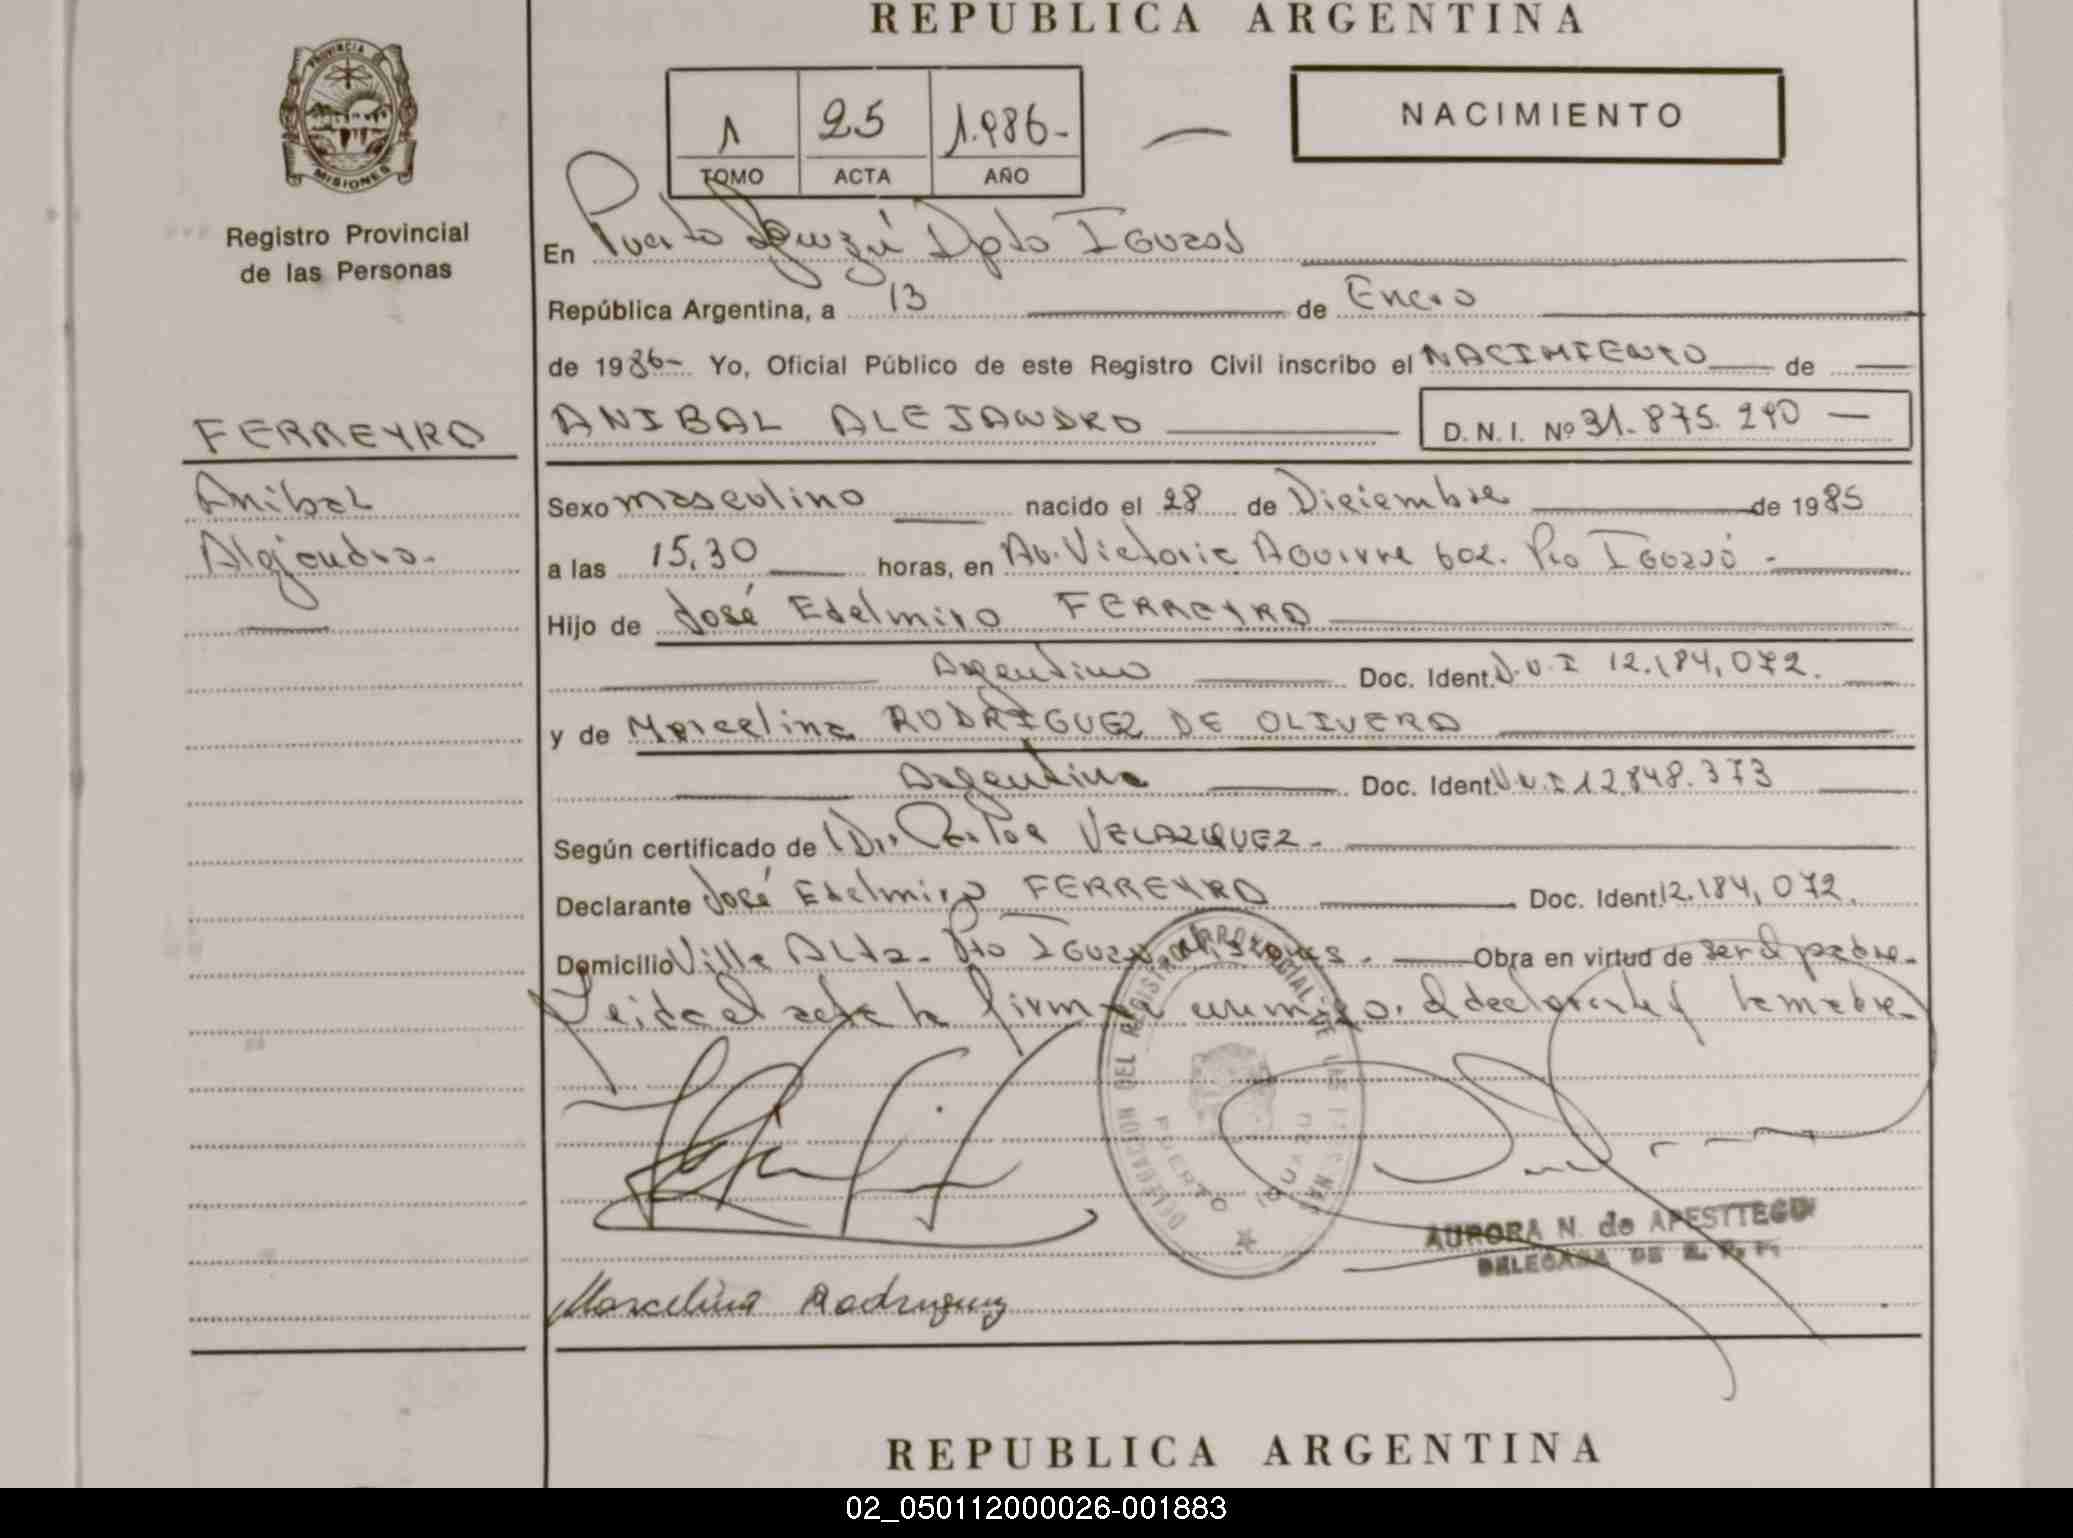 REPUBLICA ARGENTINA
PROVINCIA DE
MISIONES
Registro Provincial
de las Personas
1 25 1.986-
TOMO ACTA AÑO
NACIMIENTO
En Puerto Iguazú Dpto IGUAZÚ
República Argentina, a 13 de Enero
de 1986- Yo, Oficial Público de este Registro Civil inscribo el NACIMIENTO de
FERREYRO
ANIBAL ALEJANDRO D. N. I. Nº 31.875.290
Anibal
Alejandro.
Sexo masculino nacido el 28 de Diciembre de 1985
a las 15,30 horas, en Av. Victoria Aguirre 602. Pto Iguazú -
Hijo de José Edelmiro FERREYRO
Argentino Doc. Ident. D.N.I 12.184,072.
y de Marcelina RODRIGUEZ DE OLIVERA
Argentina Doc. Ident. D.N.I 12.848.373
Según certificado de Dr. VELAZQUEZ.
Declarante José Edelmiro FERREYRO Doc. Ident. 12.184,072.
Domicilio Villa Alta- Pto Iguazú Misiones. Obra en virtud de ser el padre-
Leida el acta la firman conmigo. el declarante y la madre-
DELEGACION DEL REGISTRO PROVINCIAL DE LAS PERSONAS
PUERTO IGUAZU
AURORA N. de APESTTEGUI
DELEGADA DE R. P. P.
Marcelina Rodriguez
REPUBLICA ARGENTINA
02_050112000026-001883